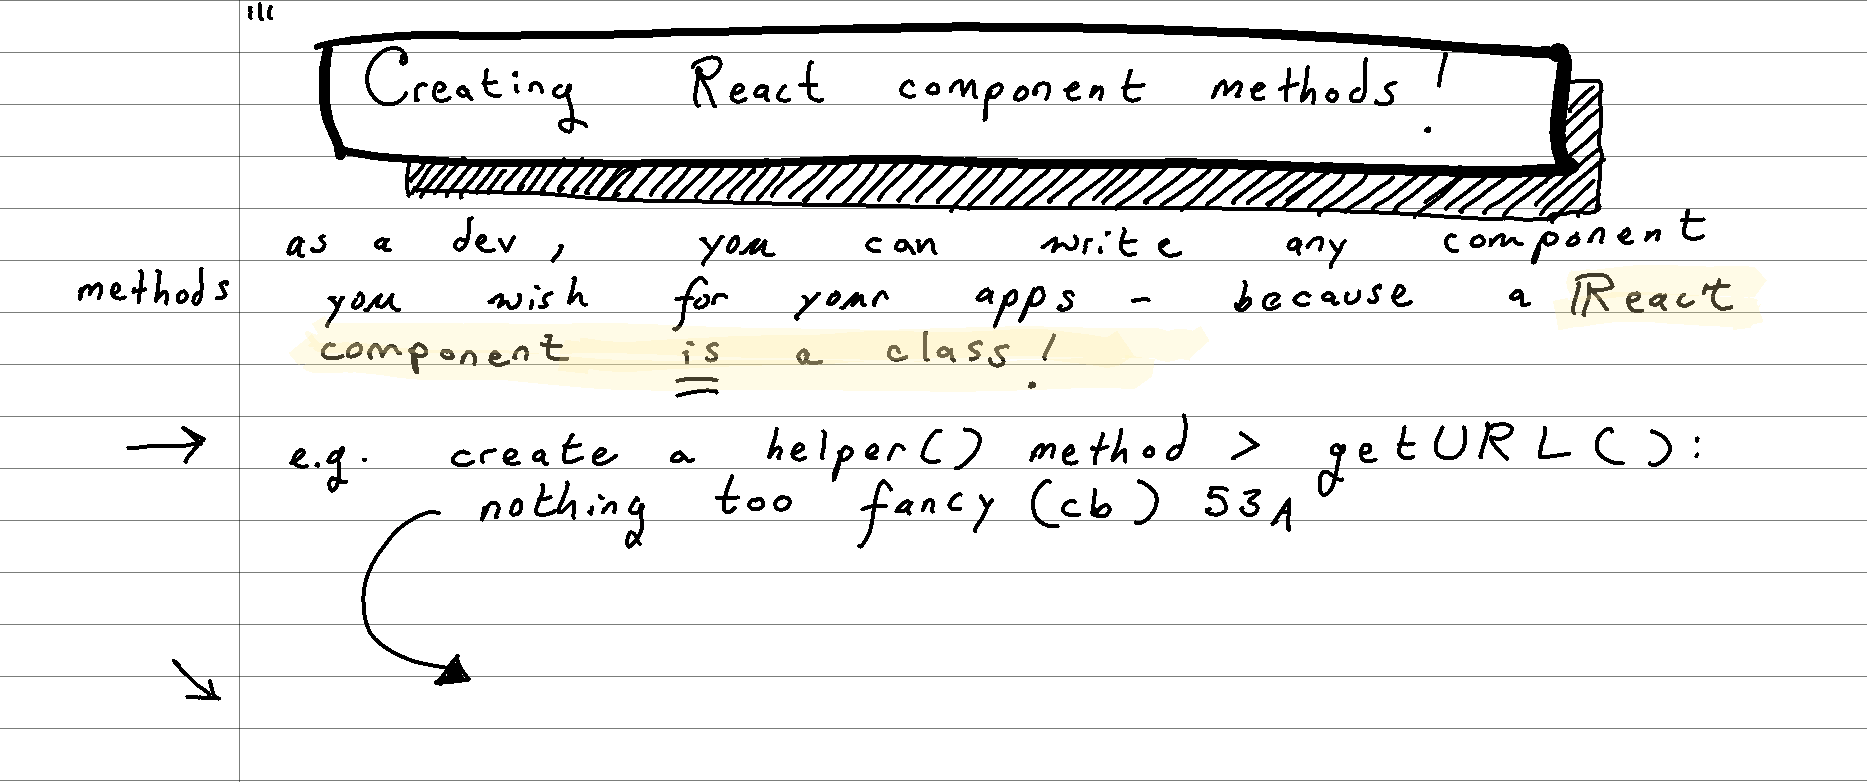 Creating React component methods!
as a dev, you can write any component
methods you wish for your apps - because a React
component is a class!
→ e.g. create a helper() method > getURL():
nothing too fancy (cb) 53A